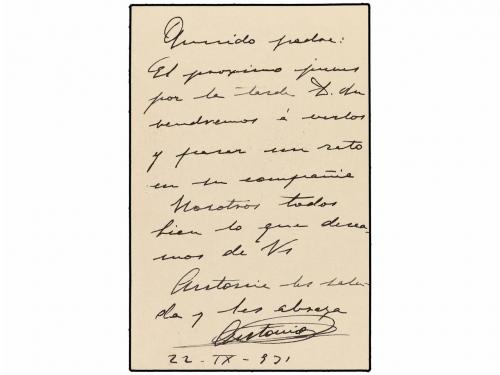 Querido padre:
El proximo jueves
por la tarde D. m
vendremos á verlos
y pasar un rato
en su compañia
Nosotros todos
bien lo que desea-
mos de Vs
Antonio les salu-
da y les abraza
Antonio
22-IX-931